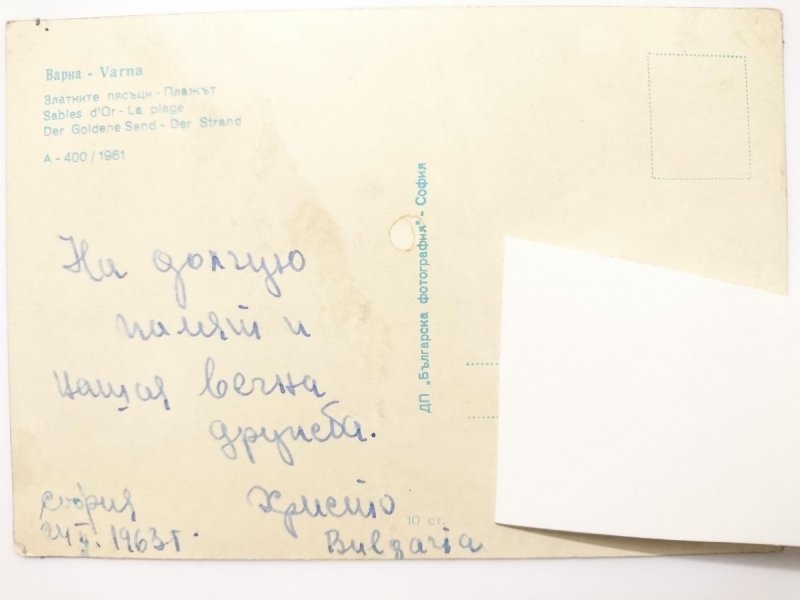 Варна - Varna
Златните пясъци - Плажът
Sables d'Or - La plage
Der Goldene Sand - Der Strand
А - 400 / 1961
На долгую
памят и
нащая вечна
дружба.
София
24 II. 1963 г.
Христо
Bulgaria
10 ст.
ДП „Българска фотография" - София